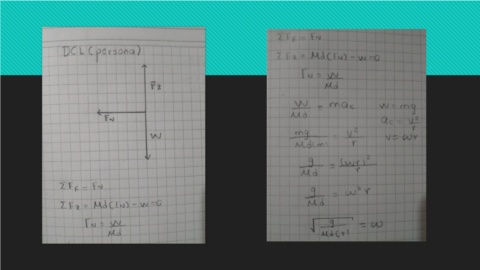 DCL (persona)
Fz
FN
W
ΣFr = FN
ΣFz = Md(FN) - w = 0
FN = W/Md
ΣFr = FN
ΣFz = Md(FN) - w = 0
FN = W/Md
W/Md = mac w = mg
ac = v²/r
mg/Md(m) = v²/r v = wr
g/Md = (wr)²/r
g/Md = w² r
√(g/Md(r)) = w